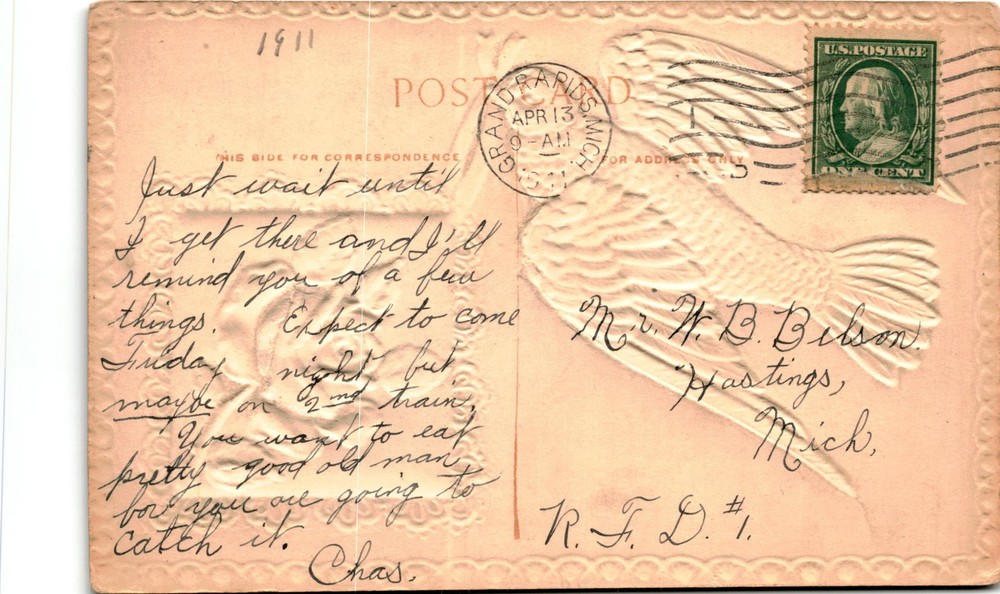 1911
POST CARD
GRAND RAPIDS, MICH.
APR 13
9-AM
1911
U.S. POSTAGE
ONE CENT
THIS SIDE FOR CORRESPONDENCE
FOR ADDRESS ONLY
Just wait until
I get there and I'll
remind you of a few
things. Expect to come
Friday night, but
maybe on 2nd train.
You want to eat
pretty good old man
for you are going to
catch it.
Chas.
Mr. W. B. Belson.
Hastings,
Mich,
R. F. D. #1.